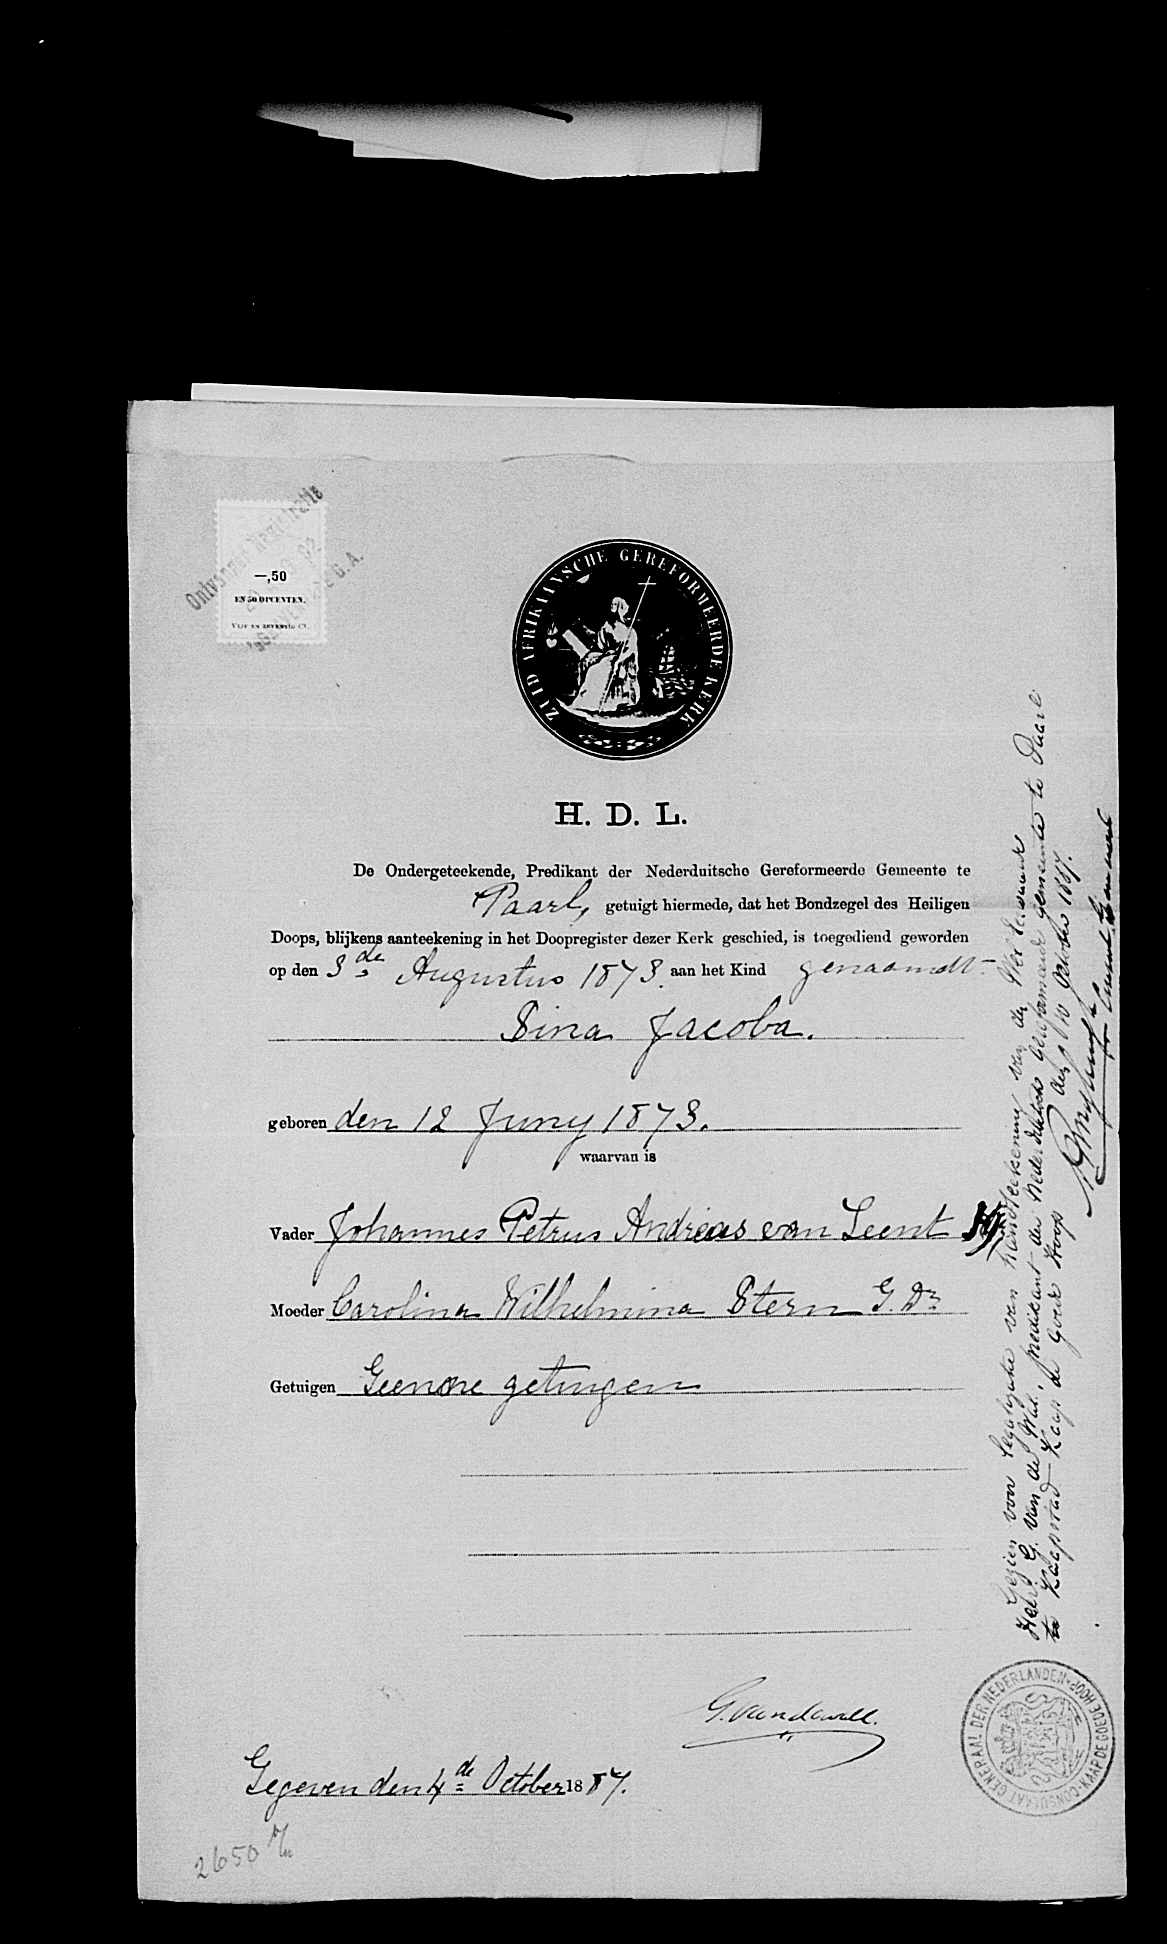 Ontvanger Registratie
—,50
EN 50 OPCENTEN.
VIJF EN ZEVENTIG CT.
ZUID AFRIKAANSCHE GEREFORMEERDE KERK
H. D. L.
De Ondergeteekende, Predikant der Nederduitsche Gereformeerde Gemeente te
Paarl, getuigt hiermede, dat het Bondzegel des Heiligen
Doops, blijkens aanteekening in het Doopregister dezer Kerk geschied, is toegediend geworden
op den 3de Augustus 1873. aan het Kind genaamdt
Sina Jacoba.
geboren den 12 Juny 1873.
waarvan is
Vader Johannes Petrus Andreas van Leent
Moeder Carolina Wilhelmina Stern G. Dr
Getuigen Geenone getuigen
G. van de Wall.
Gegeven den 4de October 1887.
2650
Gezien voor legalizatie van handteekening van den Wel Eerwaarde
Heer G. van de Wall, predikant der Nederduitsch Gereformeerde gemeente te Paarl
te Kaapstad Kaap de Goede Hoop den 10 October 1887.
Consul Generaal
CONSULAAT GENERAAL DER NEDERLANDEN KAAP DE GOEDE HOOP